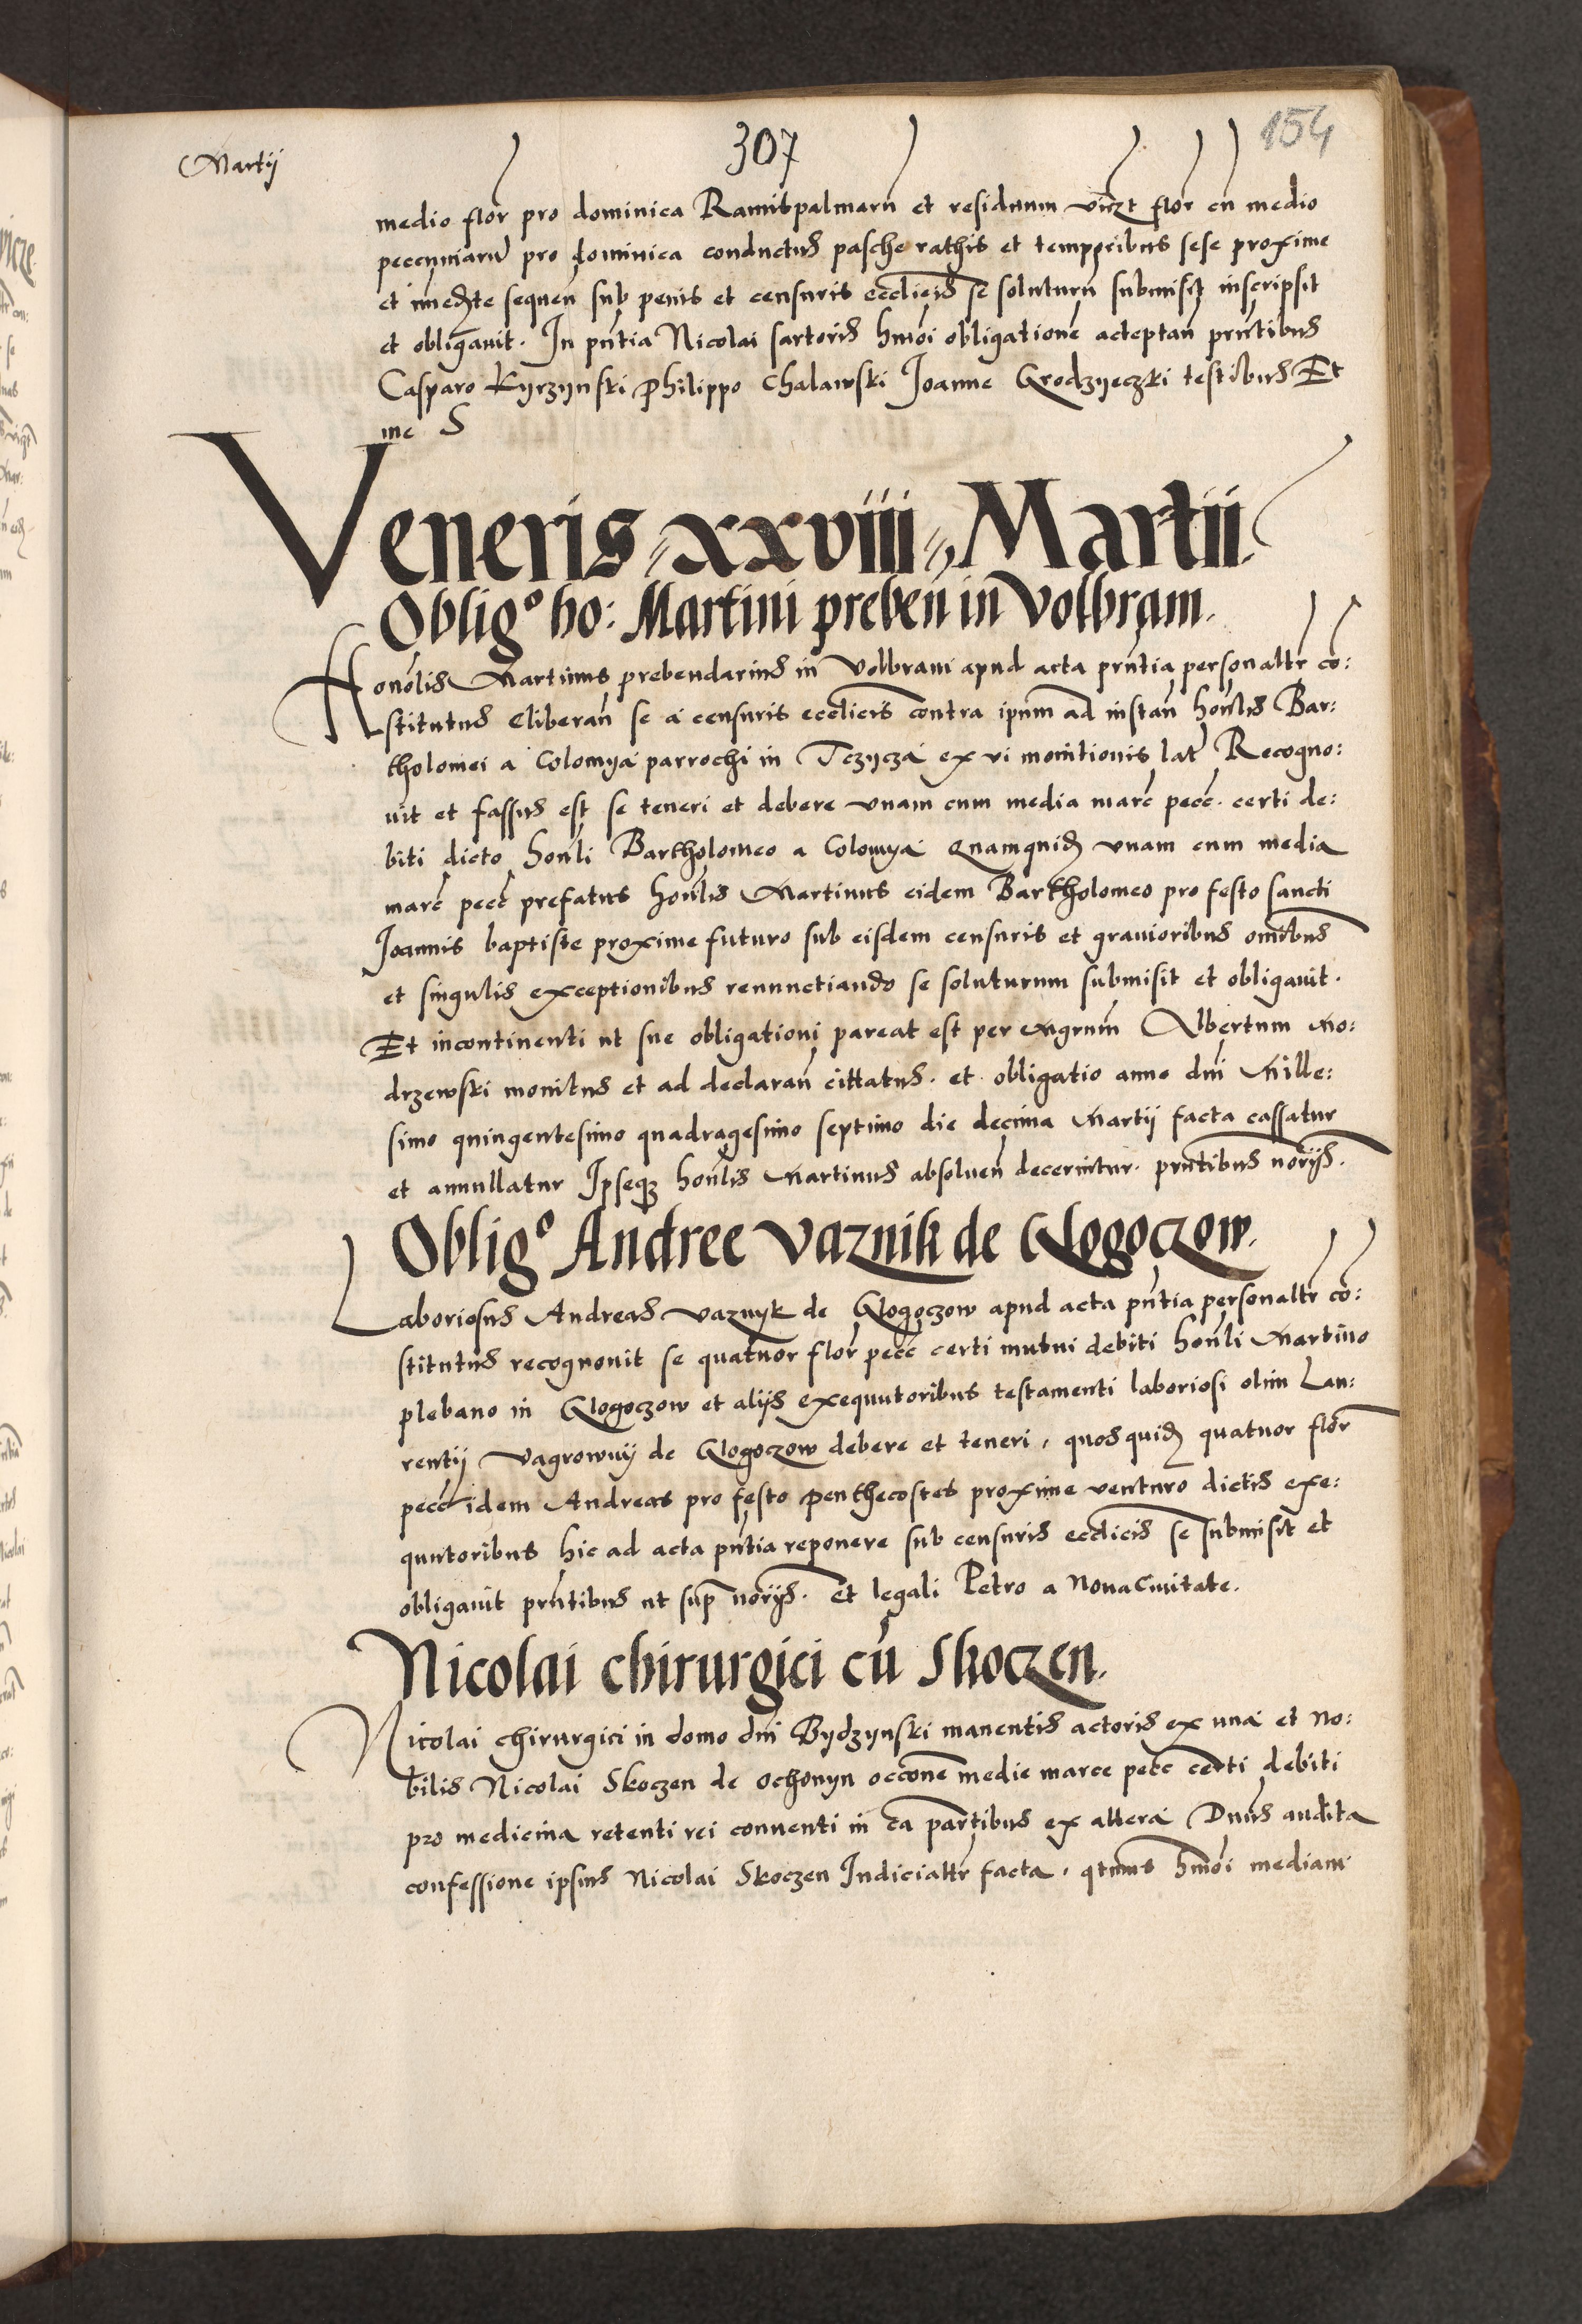 Martij
307
154
medio flor pro dominica Ramispalmarū et residuum vidzt flor cū medio
peccuniarū pro dominica conductus pasche rathis et temporibus sese proxime
et imedte sequeñ sub penis et censuris ecclicis se soluturū submisit inscripsit
et obligauit. In pñtia Nicolai sartoris hmõi obligationē acceptañ pñtibus
Casparo Kyrzynski Philippo Chalawski Joanne Grodzyeczki testibus Et
me S
Veneris xxviii Martii.
Obligº ho: Martini prebeñ in Volbram.
Honõlis Martinus prebendarius in Volbram apud acta pñtia personaltr cō:
stitutus cliberañ se a censuris ecclicis contra ipum ad instañ honlis Bar:
tholomei a Colomya parrochi in Tczycza ex vi monitionis lat Recogno:
uit et fassus est se teneri et debere vnam cum media marc pecc. certi de:
biti dicto honli Bartholomeo a Colomya Quamquid vnam cum media
marc pecc prefatus honlis Martinus eidem Bartholomeo pro festo sancti
Joannis baptiste proxime futuro sub eisdem censuris et grauioribus omibus
et singulis exceptionibus renunctiando se soluturum submisit et obligauit.
Et incontinenti ut sue obligationi pareat est per Mgrum Albertum Mo:
drzewski monitus et ad declarañ cittatus. et obligatio anno dni Mille:
simo quingentesimo quadragesimo septimo die decima Martij facta cassatur
et annullatur Ipseq honlis Martinus absolueñ decernitur. pñtibus norijs.
Obligº Andree Vaznik de Glogoczow.
Laboriosus Andreas Vaznyk de Glogoczow apud acta pñtia personaltr cō:
stitutus recognouit se quatuor flor pecc certi mutui debiti honli Martino
plebano in Glogoczow et alijs exequutoribus testamenti laboriosi olim Lau:
rentij Vagrowny de Glogoczow debere et teneri, quosquid quatuor flor
pecc idem Andreas pro festo Penthecostes proxime venturo dictis exe:
quutoribus hic ad acta pñtia reponere sub censuris ecclicis se submisit et
obligauit pñtibus ut sup norijs. et legali Petro a Noua Ciuitate.
Nicolai chirurgici cū Skoczen.
Nicolai chirurgici in domo dni Bydzynski manentis actoris ex una et No:
bilis Nicolai Skoczen de Ochonyn occone medie marce pecc certi debiti
pro medicina retenti rei conuenti in ca partibus ex altera Dnus audita
confessione ipsius Nicolai Skoczen Judicialtr facta, qtinus hmõi mediam